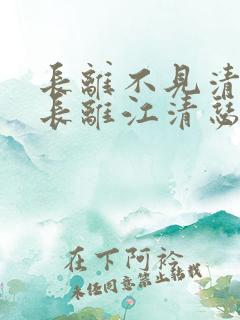 長離不見清
長離江清瑟
在下阿衿
未經同意禁止轉載